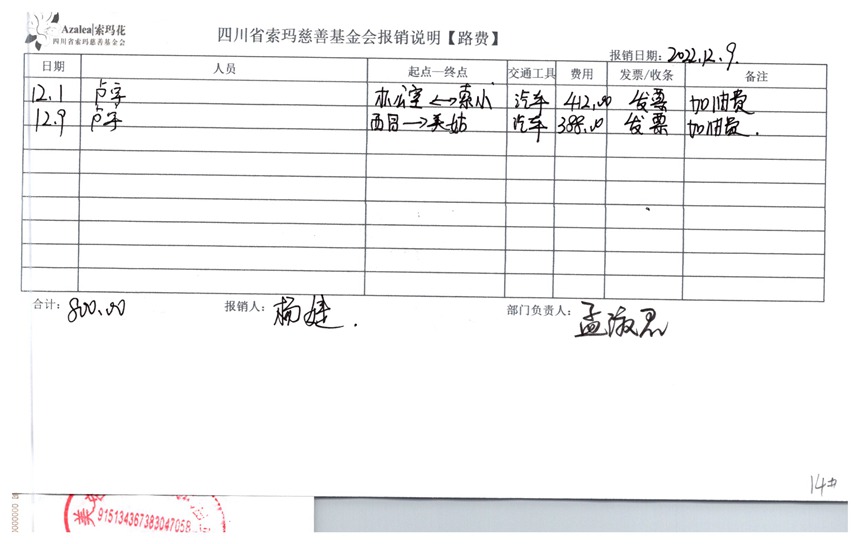 Azalea|索玛花
四川省索玛慈善基金会
四川省索玛慈善基金会报销说明【路费】
报销日期：2022.12.9.
日期 人员 起点—终点 交通工具 费用 发票/收条 备注
12.1 卢宇 办公室←→索小 汽车 412.00 发票 加油费
12.9 卢宇 西昌→美姑 汽车 388.00 发票 加油费.
合计：800.00 报销人：杨婕. 部门负责人：孟
14#
915134367383047058